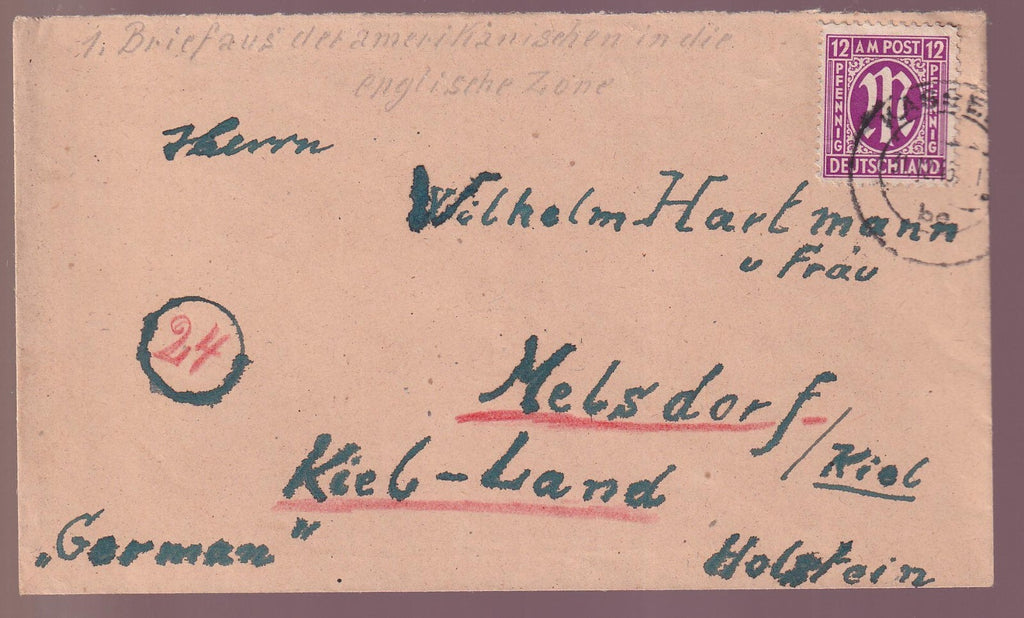 1. Brief aus der amerikanischen in die
englische Zone
12 AM POST 12
PFENNIG PFENNIG
DEUTSCHLAND
Herrn
Wilhelm Hartmann
u Frau
24
Melsdorf
/Kiel
Kiel-Land
„German"
Holstein